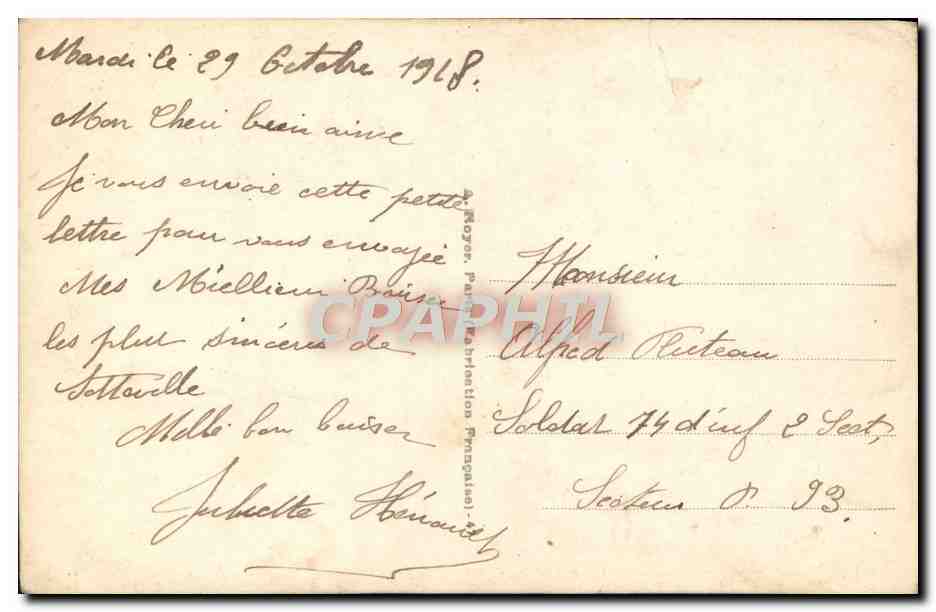 Mardi le 29 Octobre 1918.
Mon Cheri bien aime
Je vous envoie cette petite
lettre pour vous envoyée
Mes Miellieur Baiser
les plus sincères de
Sotteville
Mille bon baiser
Juliette
Monsieur
Alfed
Soldat 74 d'inf 2 Sect,
Secteur P. 93.
. Royer. Paris (Fabrication Française)
CPAPHIL